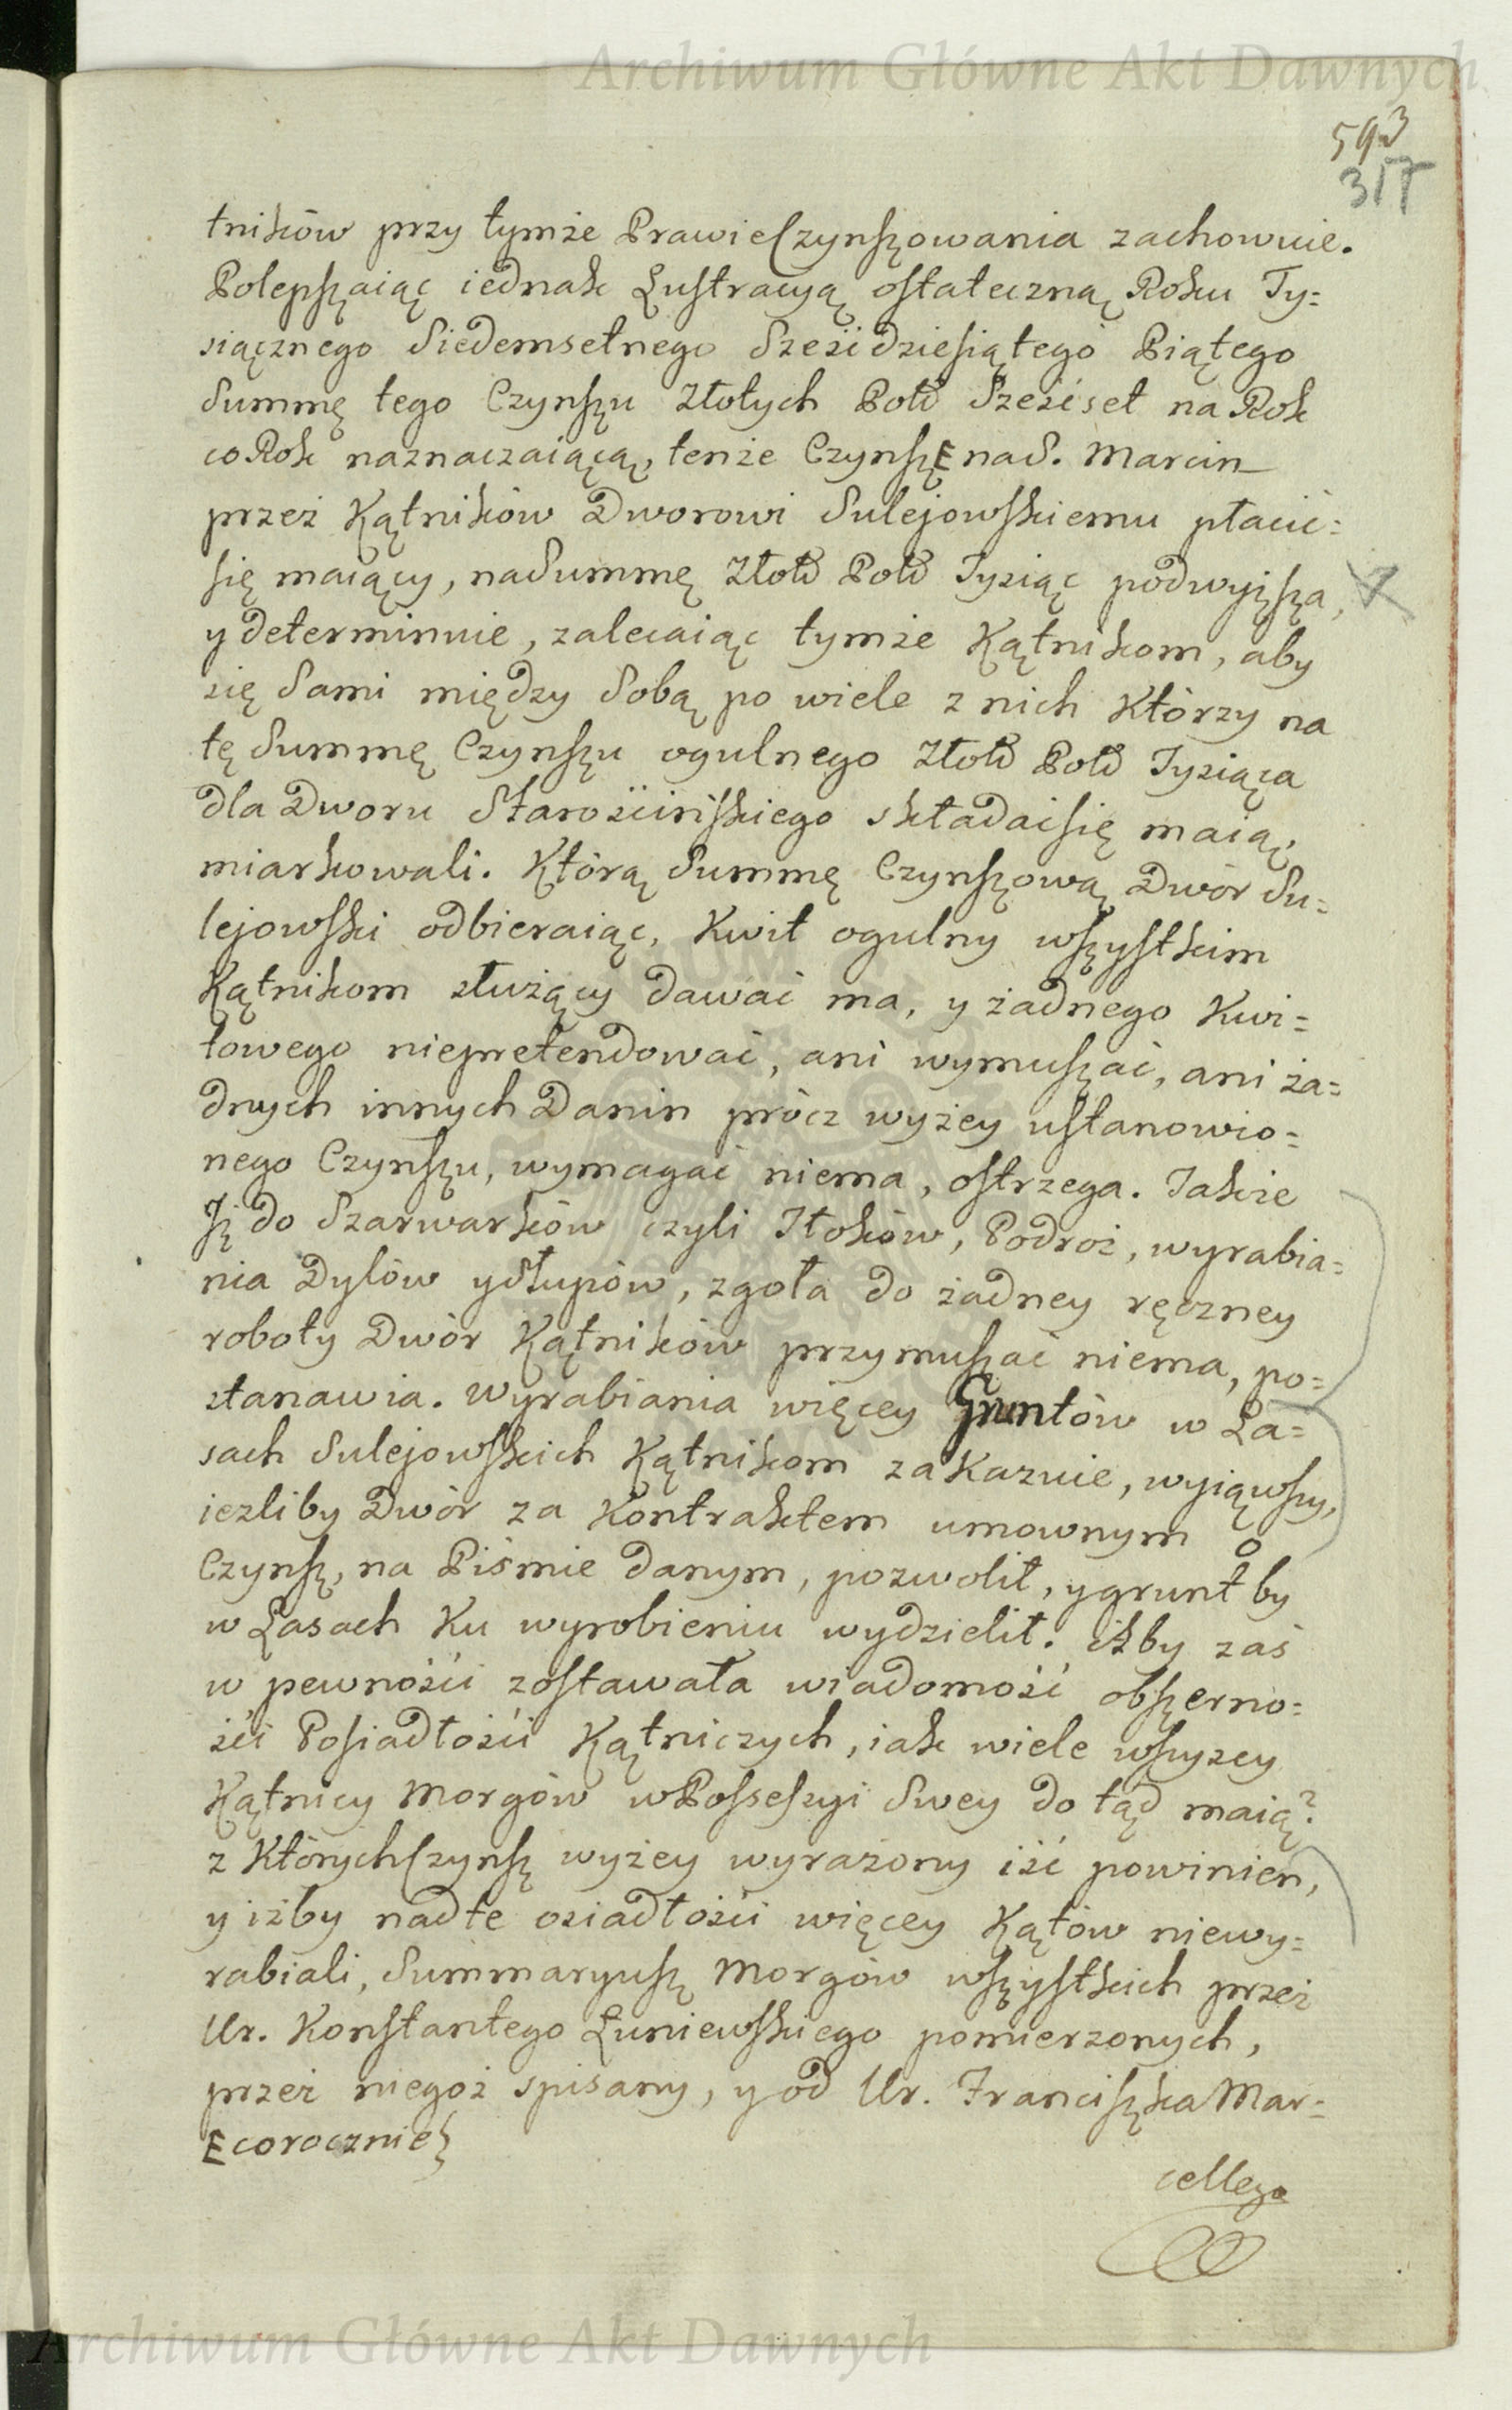 Archiwum Główne Akt Dawnych
593
317
tników przy tymże Prawie Czynszowania zachowuie.
Polepszaiąc iednak Lustracyą ostateczną Roku Ty=
siącznego Siedemsetnego Sześćdziesiątego Piątego
Summę tego Czynszu Złotych Polł Sześćset na Rok
co Rok naznaczaiącą, tenże Czynsz E na S. Marcin
przez Kątników Dworowi Sulejowskiemu płacić=
się maiący, na Summę Złotł Polł Tysiąc podwyższa,
y determinuie, zalecaiąc tymże Kątnikom, aby
się Sami między Sobą po wiele z nich Którzy na
tę Summę Czynszu ogulnego Złotł Polł Tysiąca
dla Dworu Starościńskiego składać się maią,
miarkowali. Którą Summę Czynszową Dwór Su=
lejowski odbieraiąc, Kwit ogulny wszystkim
Kątnikom służący dawać ma, y żadnego Kwi=
towego niepretendować, ani wymuszać, ani ża=
dnych innych Danin prócz wyżey ustanowio=
nego Czynszu, wymagać niema, ostrzega. Także
Iż do Szarwarków czyli Tłoków, Podroż, wyrabia=
nia Dylów y Słupów, zgoła do żadney ręczney
roboty Dwór Kątników przymuszać niema, po=
stanawia. Wyrabiania więcey Gruntów w La=
sach Sulejowskich Kątnikom zakazuie, wyiąwszy,
iezliby Dwór za Kontraktem umownym o
Czynsz, na Piśmie danym, pozwolił, y grunt by
w Lasach Ku wyrobieniu wydzielił. Ażby zaś
w pewności zostawała wiadomość obszerno=
ści Posiadłości Kątniczych, iak wiele wszyscy
Kątnicy Morgów w Possessyi Swey do tąd maią?
z Których Czynsz wyżey wyrażony iść powinien,
y iżby nad te osiadłości więcey Kątów niewy=
rabiali, Summaryusz Morgów wszystkich przez
Ur. Konstantego Łuniewskiego pomierzonych,
przez niegoż spisany, y od Ur. Franciszka Mar=
E corocznie
cellego
Archiwum Główne Akt Dawnych